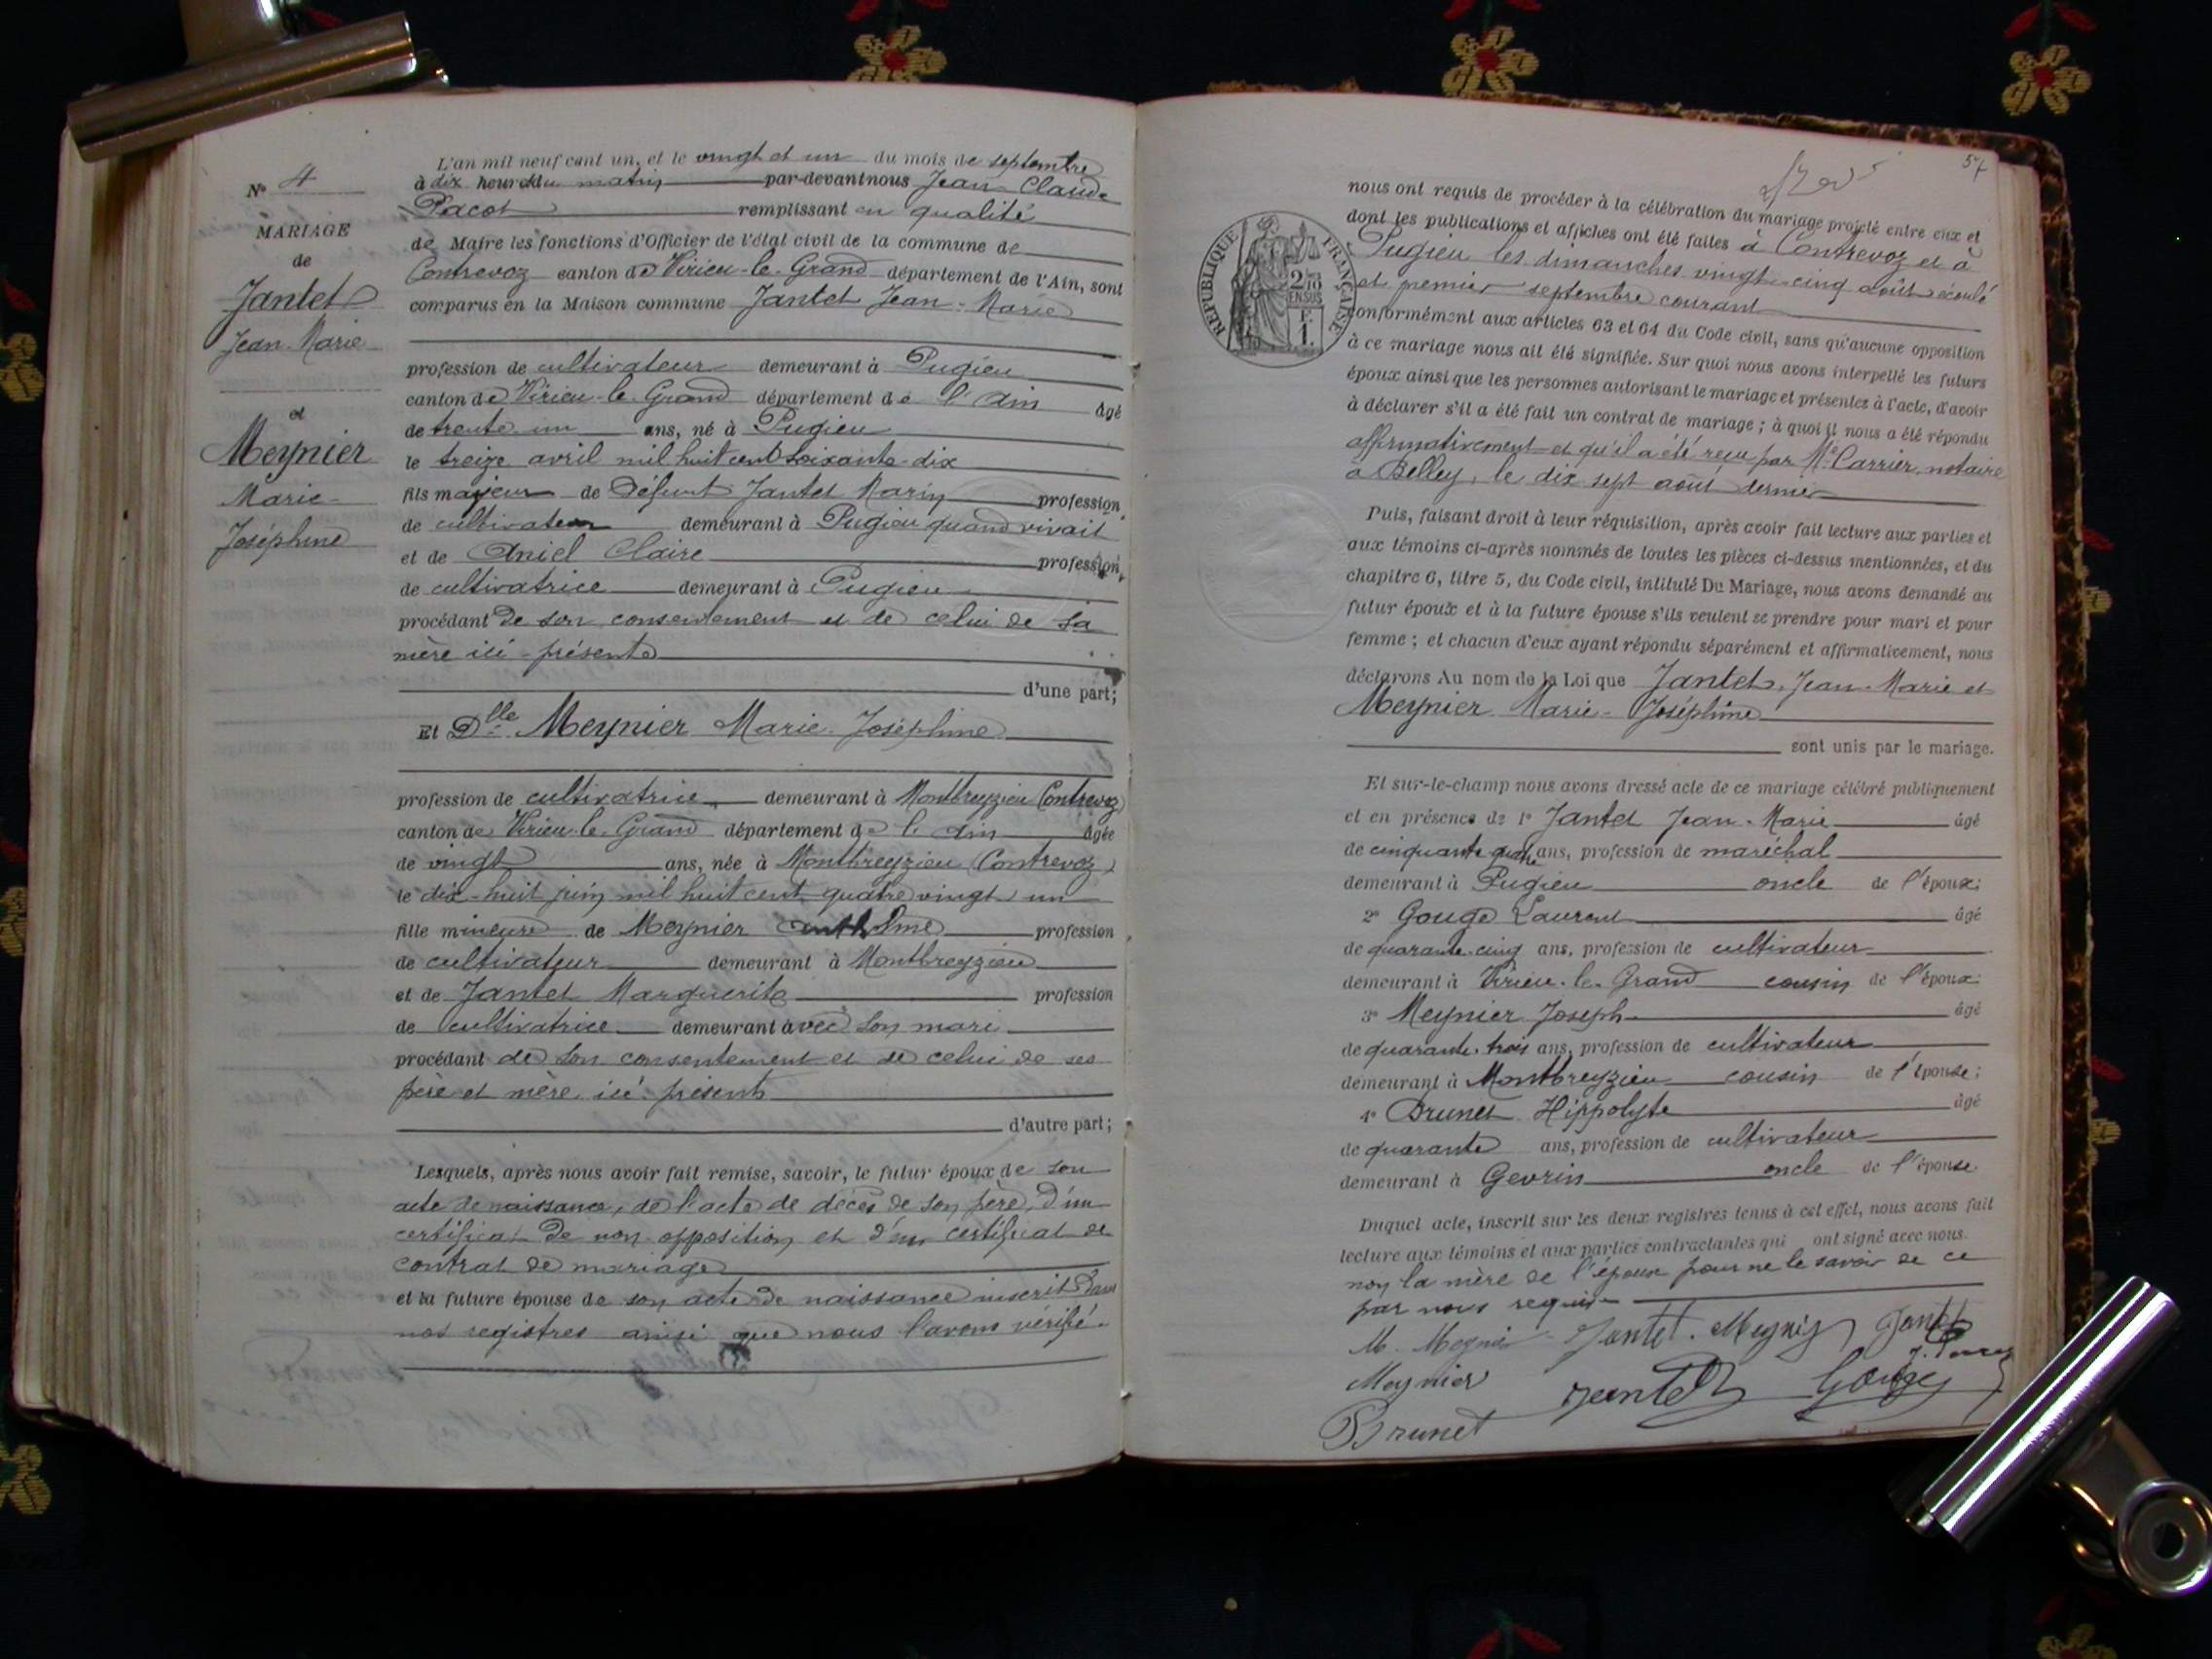 N° 4
MARIAGE
de
Jantet
Jean-Marie
et
Meynier
Marie-
Joséphine
L'an mil neuf cent un, et le vingt et un du mois de septembre
à dix heures du matin par-devant nous Jean Claude
Pacot remplissant en qualité
de Maire les fonctions d'Officier de l'état civil de la commune de
Contrevoz canton de Virieu-le-Grand département de l'Ain, sont
comparus en la Maison commune Jantet Jean-Marie
profession de cultivateur demeurant à Pugieu
canton de Virieu-le-Grand département de l'Ain âgé
de trente un ans, né à Pugieu
le treize avril mil huit cent soixante-dix
fils majeur de Défunt Jantet Marin profession
de cultivateur demeurant à Pugieu quand vivait
et de Aniel Claire profession
de cultivatrice demeurant à Pugieu
procédant de son consentement et de celui de sa
mère ici-présente
d'une part;
Et Dlle Meynier Marie-Joséphine
profession de cultivatrice demeurant à Montbreyzieu (Contrevoz)
canton de Virieu-le-Grand département de l'Ain âgée
de vingt ans, née à Montbreyzieu (Contrevoz)
le dix-huit juin mil huit cent quatre vingt un
fille mineure de Meynier Anthelme profession
de cultivateur demeurant à Montbreyzieu
et de Jantet Marguerite profession
de cultivatrice demeurant avec son mari
procédant de son consentement et de celui de ses
père et mère ici présents
d'autre part;
Lesquels, après nous avoir fait remise, savoir, le futur époux de son
acte de naissance, de l'acte de décès de son père, d'un
certificat de non-opposition et d'un certificat de
contrat de mariage
et la future épouse de son acte de naissance inscrit dans
nos registres ainsi que nous l'avons vérifié.
57
nous ont requis de procéder à la célébration du mariage projeté entre eux et
dont les publications et affiches ont été faites à Contrevoz et à
Pugieu les dimanches vingt-cinq août écoulé
et premier septembre courant
conformément aux articles 63 et 64 du Code civil, sans qu'aucune opposition
à ce mariage nous ait été signifiée. Sur quoi nous avons interpellé les futurs
époux ainsi que les personnes autorisant le mariage et présentes à l'acte, d'avoir
à déclarer s'il a été fait un contrat de mariage; à quoi il nous a été répondu
affirmativement et qu'il a été reçu par Me Carrier, notaire
à Belley, le dix sept août dernier
Puis, faisant droit à leur réquisition, après avoir fait lecture aux parties et
aux témoins ci-après nommés de toutes les pièces ci-dessus mentionnées, et du
chapitre 6, titre 5, du Code civil, intitulé Du Mariage, nous avons demandé au
futur époux et à la future épouse s'ils veulent se prendre pour mari et pour
femme; et chacun d'eux ayant répondu séparément et affirmativement, nous
déclarons Au nom de la Loi que Jantet, Jean-Marie et
Meynier Marie-Joséphine
sont unis par le mariage.
Et sur-le-champ nous avons dressé acte de ce mariage célébré publiquement
et en présence de 1° Jantet Jean-Marie âgé
de cinquante quatre ans, profession de maréchal
demeurant à Pugieu oncle de l'époux;
2° Gouge Laurent âgé
de quarante-cinq ans, profession de cultivateur
demeurant à Virieu-le-Grand cousin de l'époux;
3° Meynier Joseph âgé
de quarante-trois ans, profession de cultivateur
demeurant à Montbreyzieu cousin de l'épouse;
4° Brunet Hippolyte âgé
de quarante ans, profession de cultivateur
demeurant à Gevrin oncle de l'épouse.
Duquel acte, inscrit sur les deux registres tenus à cet effet, nous avons fait
lecture aux témoins et aux parties contractantes qui ont signé avec nous
non la mère de l'époux pour ne le savoir de ce
par nous requise
M. Meynier Jantet. Meynier Jantet
Meynier Jantet Gouge
Brunet
RÉPUBLIQUE FRANÇAISE
2/10
EN SUS
F.
1.